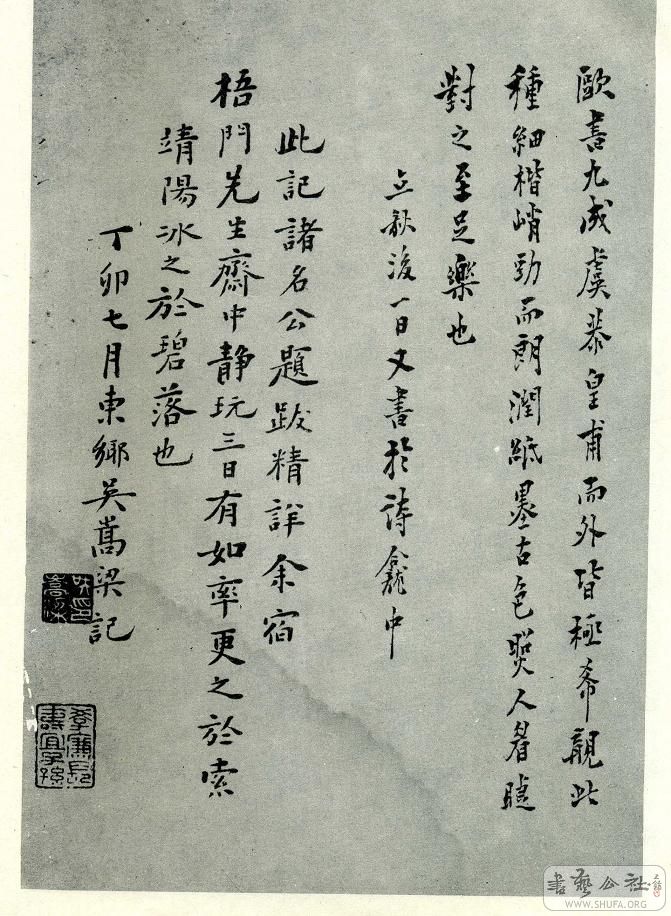 歐書九成虞恭皇甫而外皆極希覯此
種細楷峭勁而朗潤紙墨古色照人眉睫
對之至足樂也
立秋後一日又書於詩龕中
此記諸名公題跋精詳余宿
梧門先生齋中靜玩三日有如率更之於索
靖陽冰之於碧落也
丁卯七月東鄉吳嵩梁記
書藝公社
WWW.SHUFA.ORG